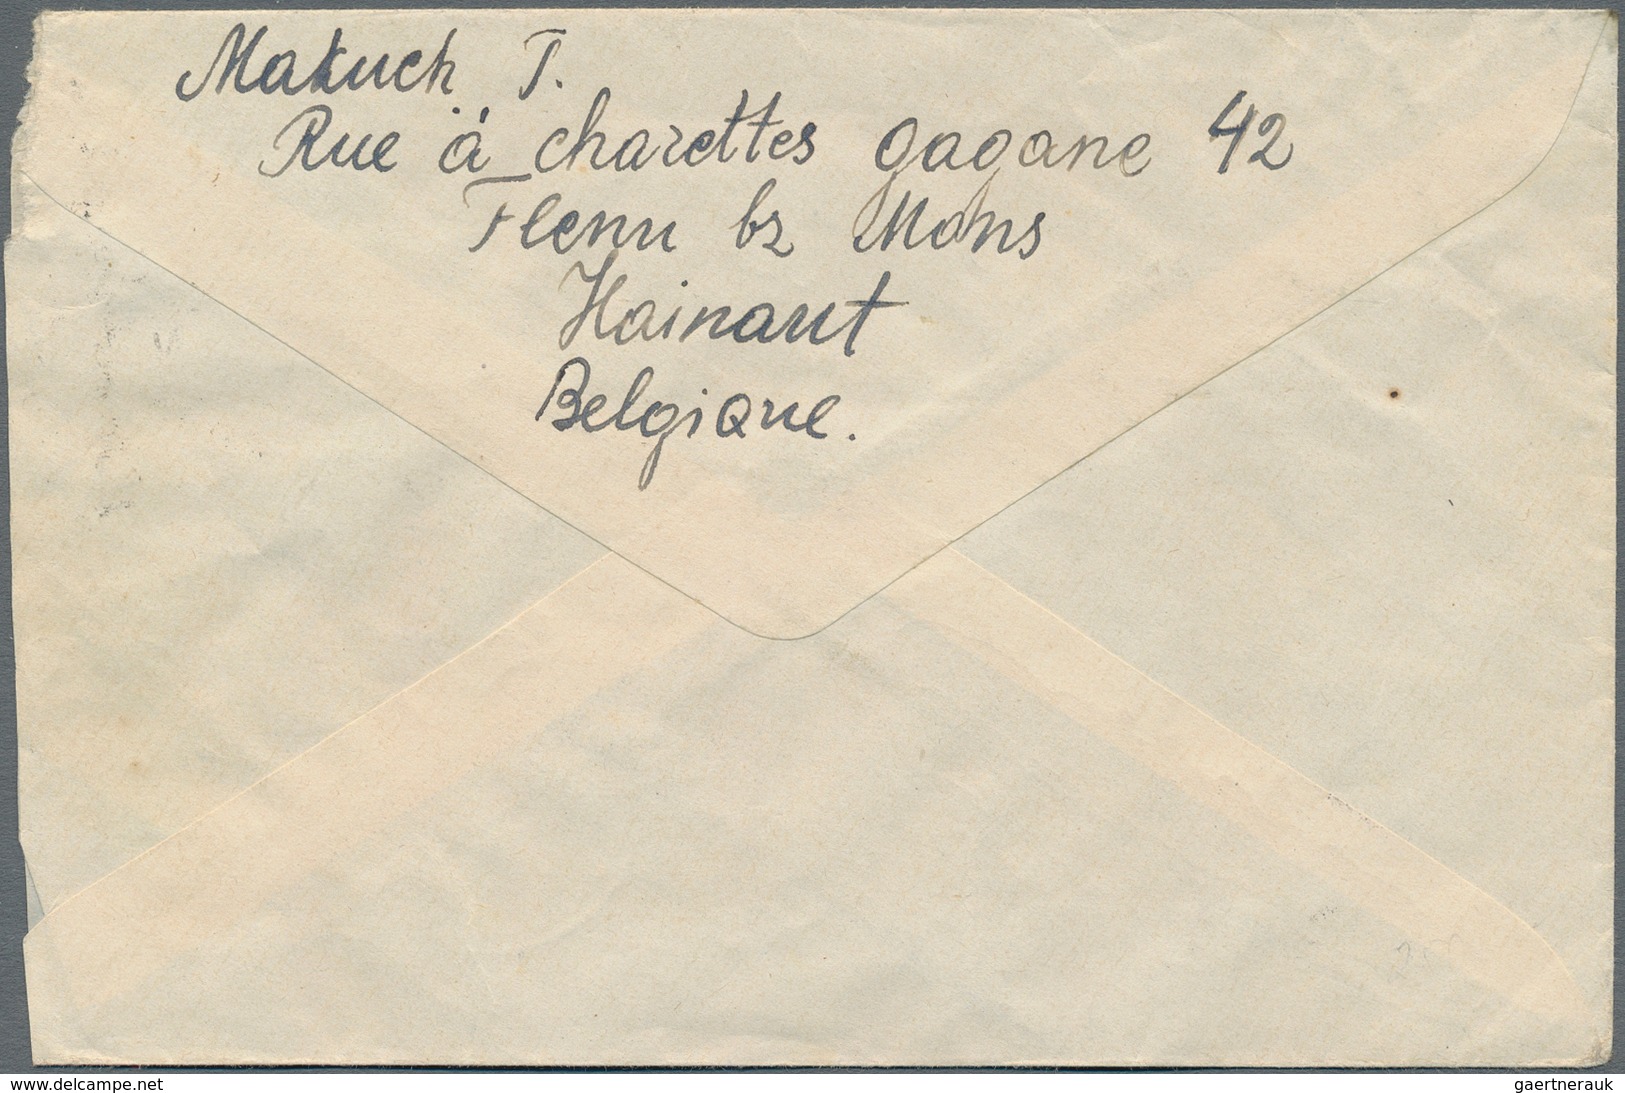 Makuch T.
Rue à charettes gagane 42
Flenu bz Mons
Hainaut
Belgique.
www.delcampe.net
gaertnerauk